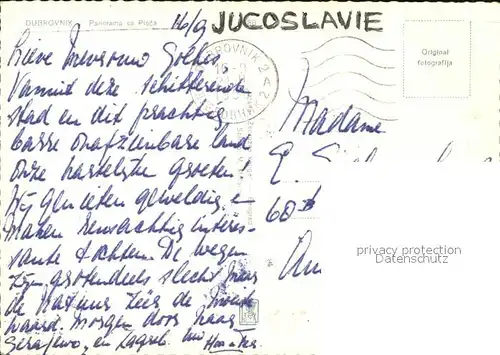 DUBROVNIK Panorama sa Ploča
16/9 JUGOSLAVIE
Lieve Mevrouw
Vanuit deze schitterende
stad en dit prachtig
land
onze hartelijke groeten!
Wij genieten geweldig, en
maken reusachtig interes-
sante tochten. De wegen
zijn grotendeels slecht maar
de natuur is de moeite
waard. Morgen door naar
Serajewo, en Zagreb.
DUBROVNIK 2
Original
fotografija
Madame
60
privacy protection
Datenschutz